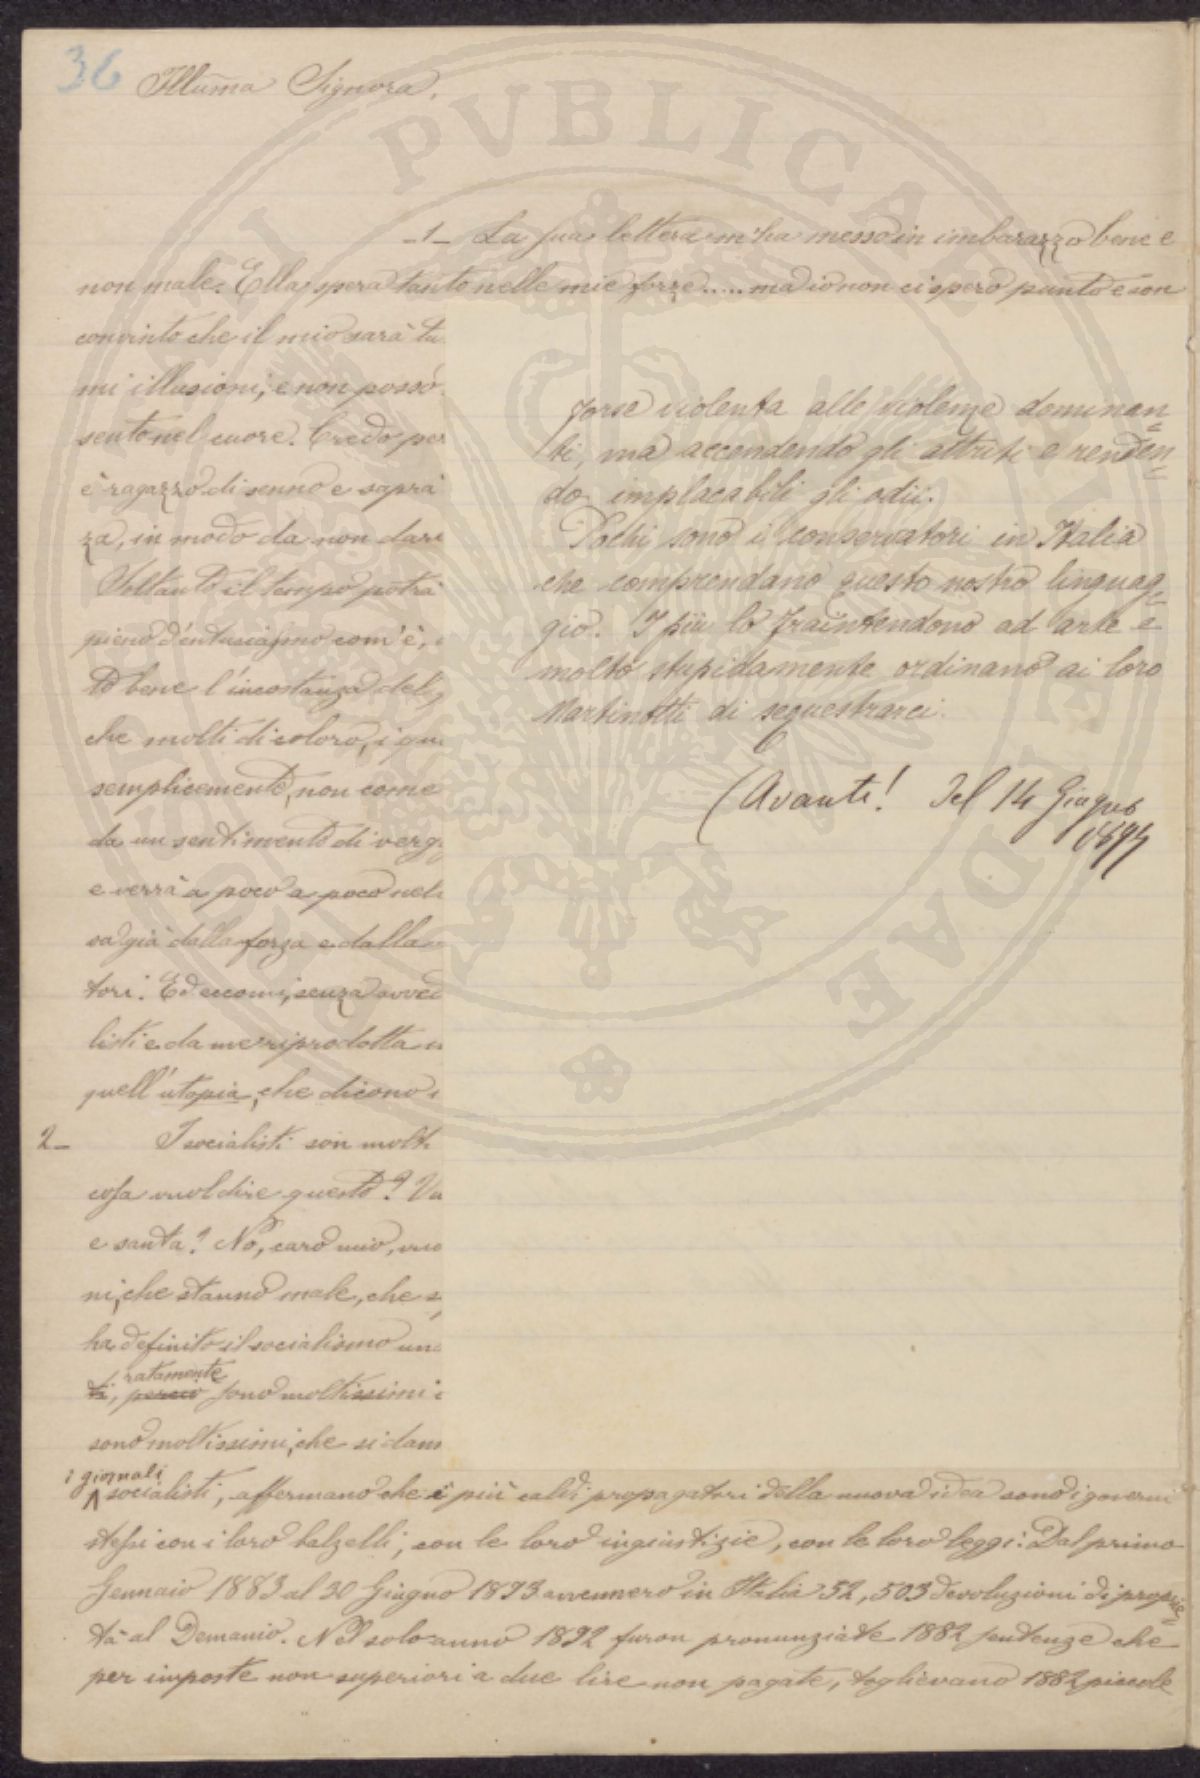 36
Illuma Signora,
-1- La sua lettera m'ha messo in imbarazzo bene e
non male. Ella spera tanto nelle mie forze..... ma io non ci spero punto e son
convinto che il mio sarà tu
mi illusioni, e non posso
sento nel cuore. Credo per
è ragazzo di senno e saprà
za, in modo da non dare
Soltanto il tempo potrà
pieno d'entusiasmo com'è,
to bene l'incostanza del
che molti di coloro, i qua
semplicemente, non come
da un sentimento di verg
e verrà a poco a poco nel
sa già dalla forza e dalla
tori. Ed eccomi, senza avved
listi e da me riprodotta
quell'utopia, che dicono
2- I socialisti son molti
cosa vuol dire questo? Vu
e santa? No, caro mio, vuo
ni, che stanno male, che s
ha definito il socialismo un
ratamente
ti, perciò sono moltissimi
sono moltissimi, che si dann
i giornali
socialisti, affermano che i più caldi propagatori della nuova idea sono i governi
stessi con i loro balzelli, con le loro ingiustizie, con le loro leggi: Dal primo
Gennaio 1883 al 30 Giugno 1893 avvennero in Italia 52,503 devoluzioni di proprie=
tà al Demanio. Nel solo anno 1892 furon pronunziate 1882 sentenze che
per imposte non superiori a due lire non pagate, toglievano 1882 piccole
forse violenta alle violenze dominan=
ti, ma accendendo gli attriti e renden=
do implacabili gli odii.
Pochi sono i conservatori in Italia
che comprendano questo nostro linguag=
gio. I più lo fraintendono ad arte e
molto stupidamente ordinano ai loro
Martinotti di sequestrarci.
(Avanti! del 14 Giugno
1897
PVBLICAE
DAE